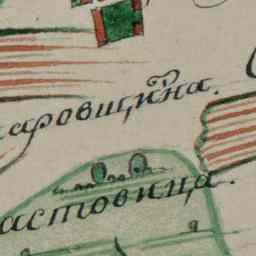 аровщина.
астовица.